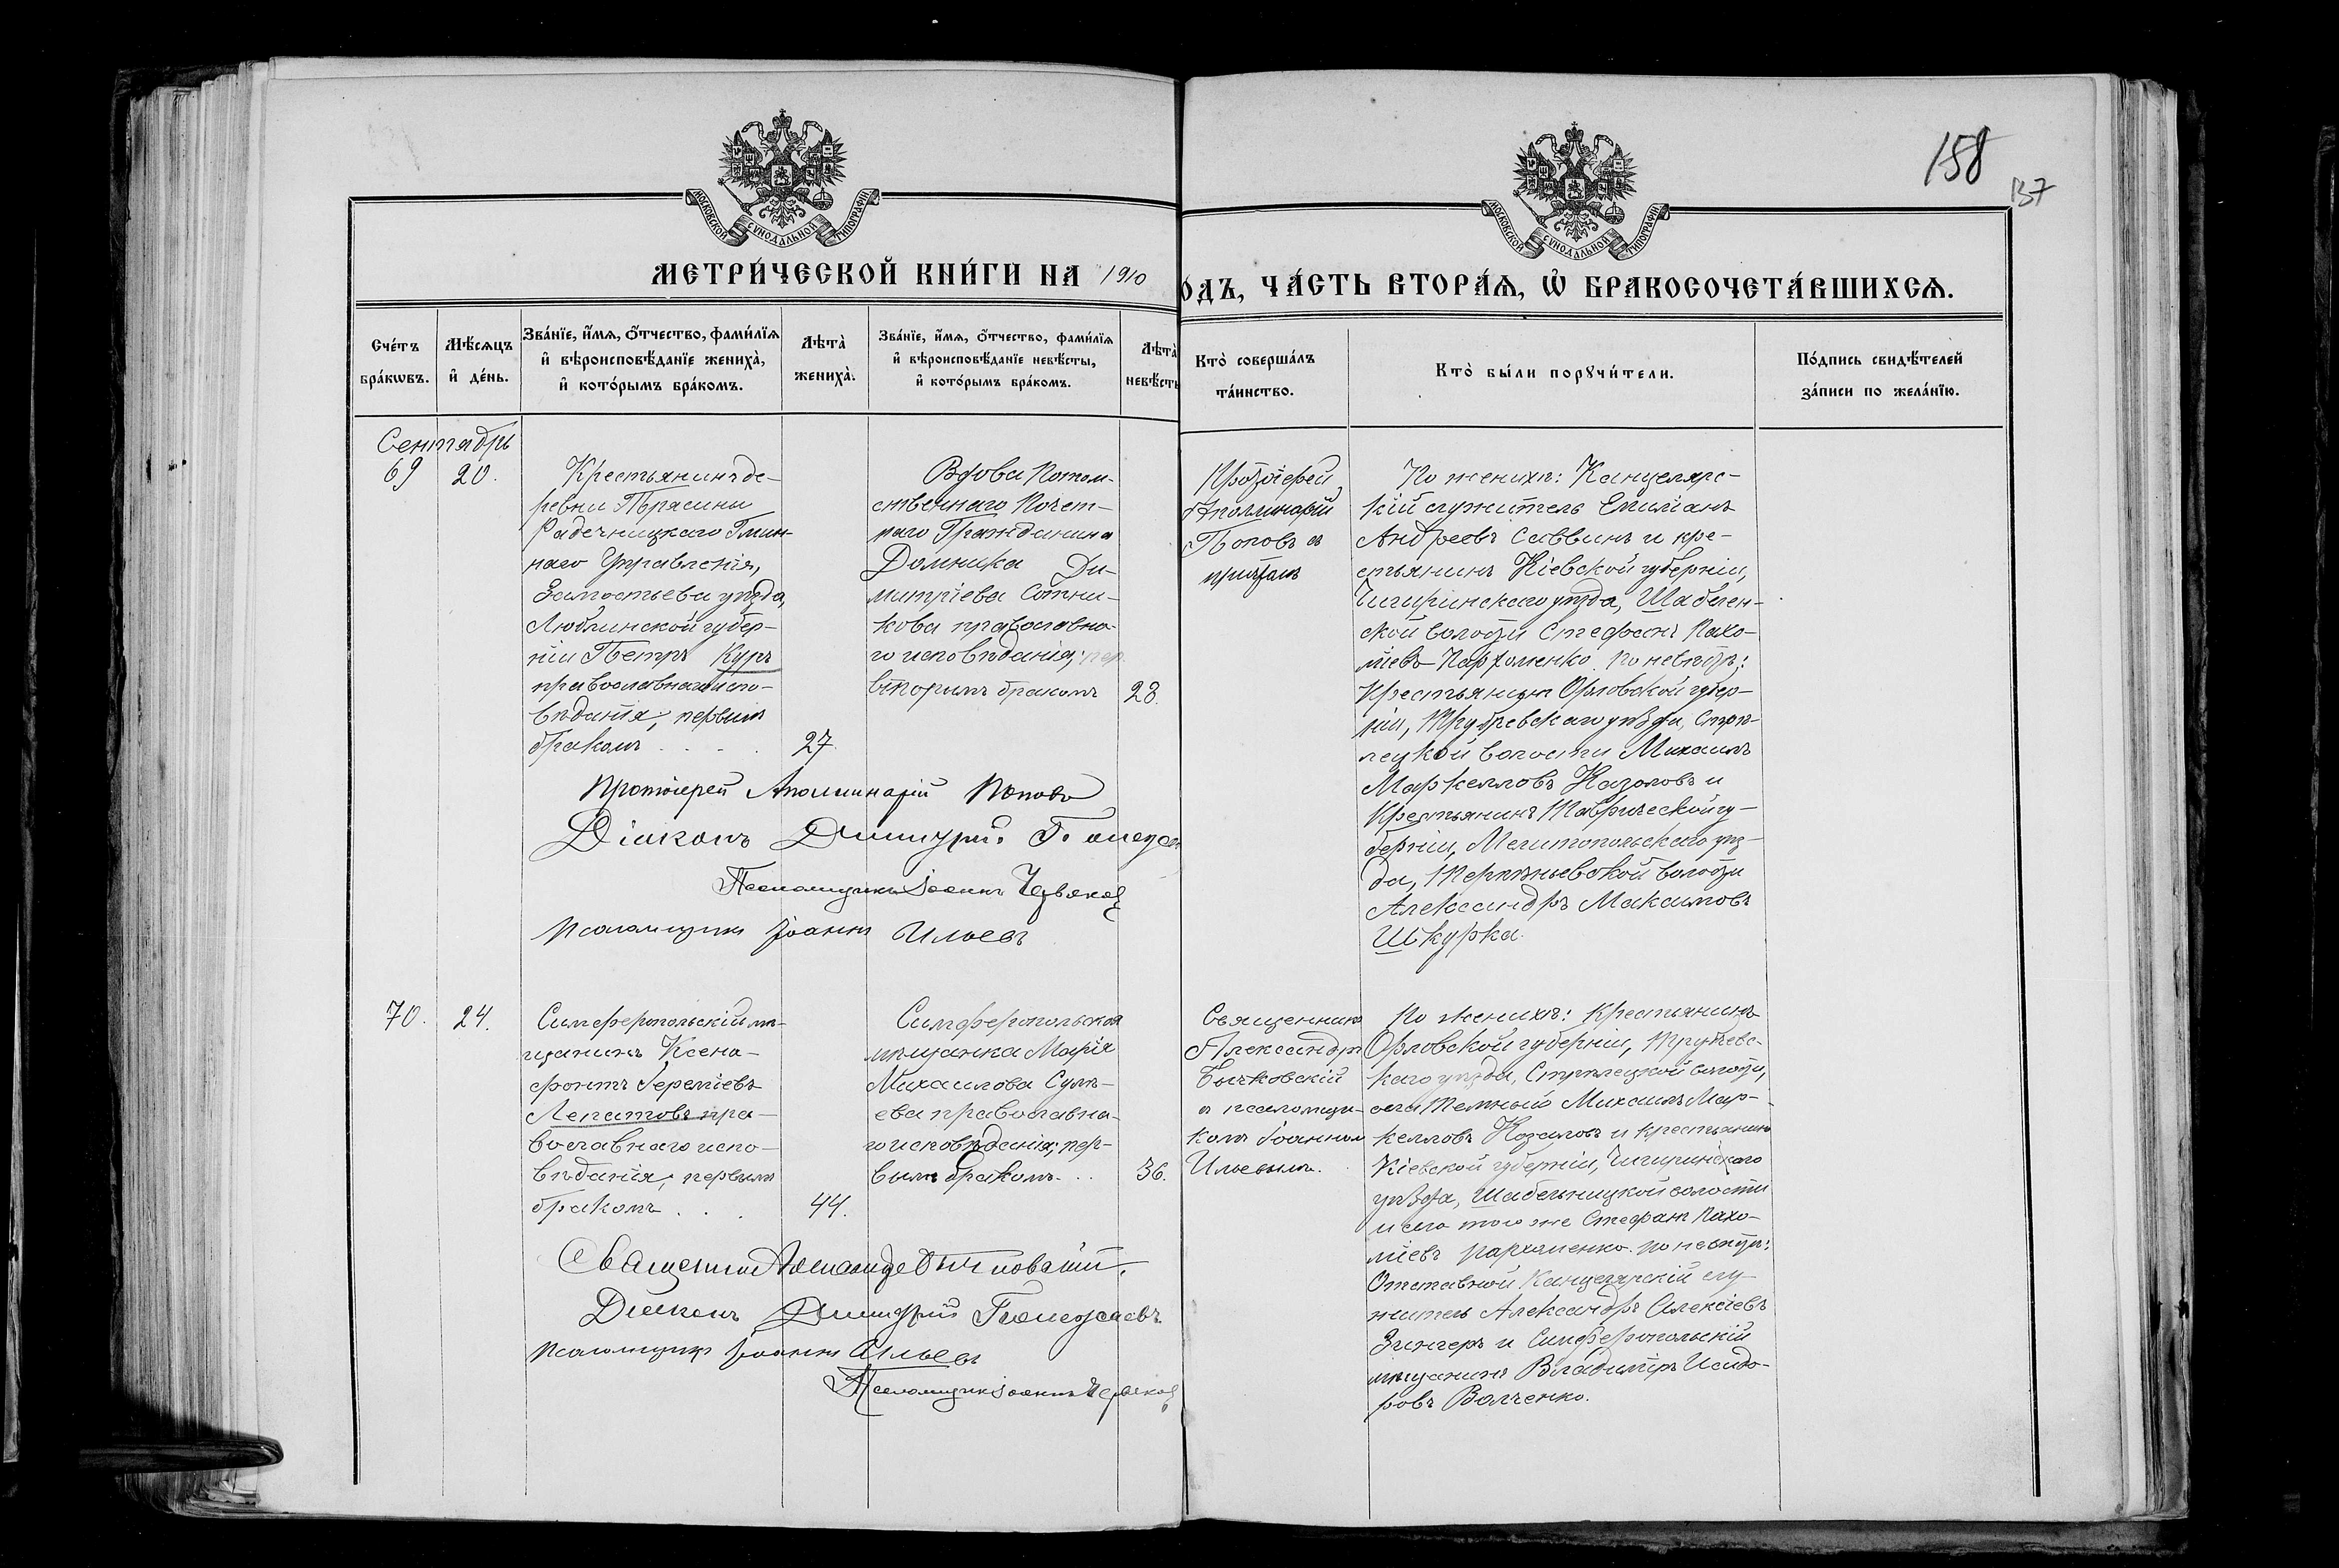 158
137
МОСКОВСКОЙ СѴНОДАЛЬНОЙ ТИПОГРАФІИ
МОСКОВСКОЙ СѴНОДАЛЬНОЙ ТИПОГРАФІИ
МЕТРИ́ЧЕСКОЙ КНИ́ГИ НА 1910
О́ДЪ, ЧА́СТЬ ВТОРА́Ѧ, Ѡ҆ БРАКОСОЧЕТА́ВШИХСѦ.
Сче́тъ
бра́кѡвъ.
Мѣ́сяцъ
и҆ де́нь.
Зва́нїе, и҆́мѧ, ѻ҆́тчество, фами́лїѧ
и҆ вѣроисповѣ́данїе жениха̀,
и҆ кото́рымъ бра́комъ.
Лѣта̀
жениха̀.
Зва́нїе, и҆́мѧ, ѻ҆́тчество, фами́лїѧ
и҆ вѣроисповѣ́данїе невѣ́сты,
и҆ кото́рымъ бра́комъ.
Лѣта̀
невѣ́сты
Кто̀ соверша́лъ
та́инство.
Кто̀ бы́ли порꙋчи́тели.
По́дпись свидѣ́телей
за́писи по жела́нїю.
Сентябрь
69
20.
Крестьянинъ де-
ревни
Радечницкаго Гмин-
наго Управленія,
Замостьева уѣзда,
Люблинской губер-
ніи Петръ Куръ
православнаго испо-
вѣданія, первымъ
бракомъ
27.
Вдова Потом-
ственнаго Почет-
наго Гражданина
Домника Ди-
митріева Сотни-
кова православна-
го исповѣданія;
вторымъ бракомъ
28.
Протоіерей
Аполлинарій
Поповъ съ
причтомъ
По женихѣ: Канцеляр-
кій служитель Емиліанъ
Андреевъ Саввинъ и кре-
стьянинъ Кіевской губерніи,
Чигиринскаго уѣзда, Шабелен-
ской волости Стефанъ Пахо-
міевъ Пархоменко. По невѣстѣ:
Крестьянинъ Орловской губер-
ніи, Трубчевскаго уѣзда, Стрѣ-
лецкой волости Михаилъ
Маркелловъ Козоловъ и
Крестьянинъ Таврической гу-
берніи, Мелитопольскаго уѣз-
да, Терпѣньевской волости
Александръ Максимовъ
Шкурка.
Протоіерей Аполлинарій Поповъ
Діаконъ Димитрій
Псаломщикъ Іоаннъ Червяков
Псаломщикъ Іоаннъ Ильевъ
70.
24.
Симферопольскій мѣ-
щанинъ Ксено-
фонтъ Іереміевъ
Лепатовъ пра-
вославнаго испо-
вѣданія, первымъ
бракомъ
44.
Симферопольская
мѣщанка Марія
Михаилова Сулѣ-
ева православна-
го исповѣданія; пер-
вымъ бракомъ.
36.
Священникъ
Александръ
Бычковскій
съ псаломщи-
комъ Іоанномъ
Ильевымъ.
По женихѣ: Крестьянинъ
Орловской губерніи, Трубчевс-
каго уѣзда, Стрѣлецкой волости,
села Темнаго Михаилъ Мар-
келловъ Козоловъ и крестьянинъ
Кіевской губерніи, Чигиринскаго
уѣзда, Шабельницкой волости
и села того же Стефанъ Пахо-
міевъ Пархоменко. По невѣстѣ:
Отставной Канцелярскій слу-
житель Александръ Алексіевъ
Зингеръ и Симферопольскій
мѣщанинъ Владиміръ Исидо-
ровъ Волченко.
Священникъ Александръ Бычковскій.
Діаконъ Димитрій
Псаломщикъ Іоаннъ Ильевъ
Псаломщикъ Іоаннъ Червяков